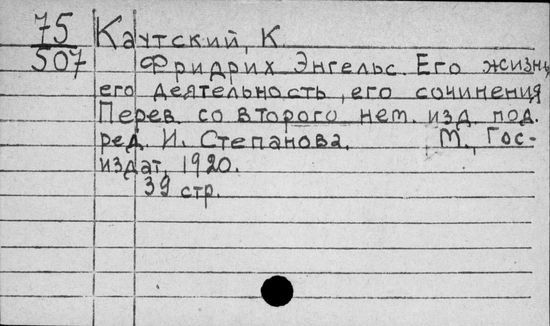 75 Каутский, К.
507 Фридрих Энгельс. Его жизнь,
его деятельность, его сочинения
Перев. со второго нем. изд. под.
ред. И. Степанова. М., Гос-
издат, 1920.
39 стр.